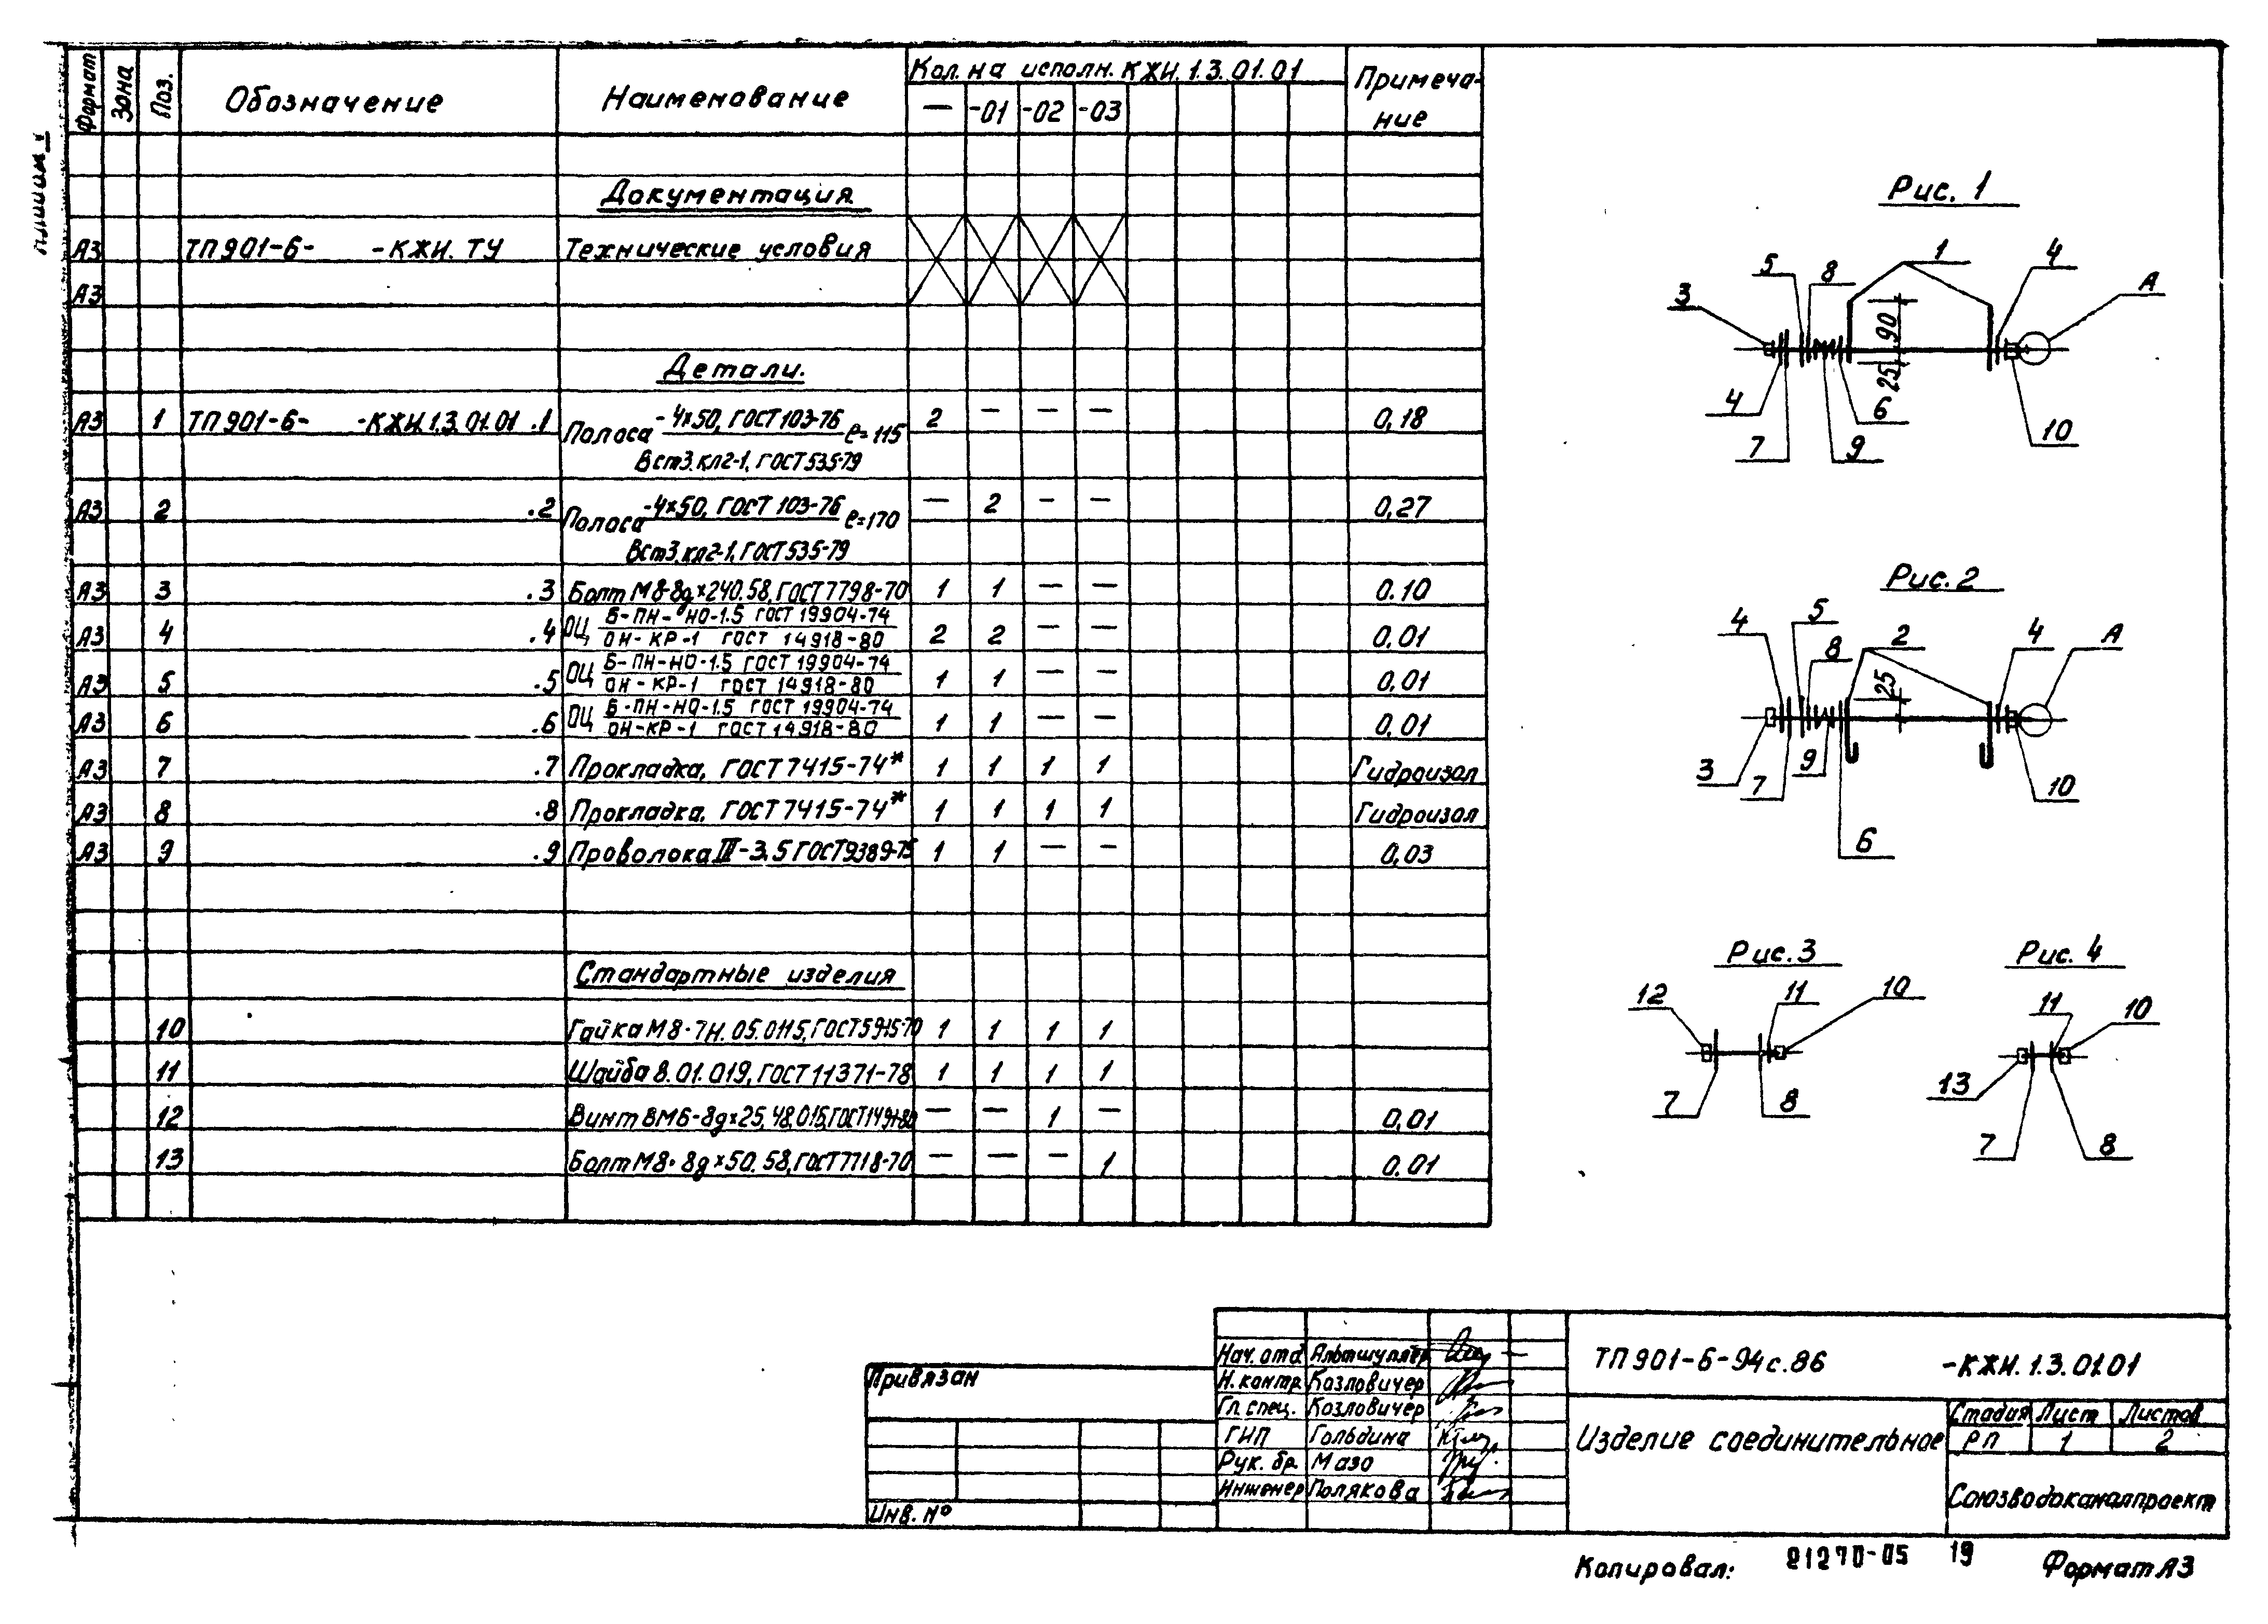 Формат Зона Поз. Обозначение Наименование Кол. на исполн. КЖИ. 1.3. 01.01 Примеча-ние
— -01 -02 -03
Документация
А3 ТП901-6- -КЖИ. ТУ Технические условия
А3
Детали.
А3 1 ТП901-6- -КЖИ.1.3.01.01 .1 Полоса -4×50, ГОСТ 103-76 ℓ=115 2 — — — 0,18
Вст3.кл2-1, ГОСТ535-79
А3 2 .2 Полоса -4×50, ГОСТ 103-76 ℓ=170 — 2 — — 0,27
Вст3.кл2-1, ГОСТ535-79
А3 3 .3 Болт М8-8g×240.58, ГОСТ7798-70 1 1 — — 0.10
А3 4 .4 ОЦ Б-ПН-НО-1.5 ГОСТ 19904-74 2 2 — — 0,01
ОН-КР-1 ГОСТ 14918-80
А3 5 .5 ОЦ Б-ПН-НО-1.5 ГОСТ 19904-74 1 1 — — 0,01
ОН-КР-1 ГОСТ 14918-80
А3 6 .6 ОЦ Б-ПН-НО-1.5 ГОСТ 19904-74 1 1 — — 0,01
ОН-КР-1 ГОСТ 14918-80
А3 7 .7 Прокладка, ГОСТ7415-74* 1 1 1 1 Гидроизол
А3 8 .8 Прокладка, ГОСТ7415-74* 1 1 1 1 Гидроизол
А3 9 .9 Проволока III-3,5 ГОСТ9389-75 1 1 — — 0,03
Стандартные изделия
10 Гайка М8-7Н.05.0115, ГОСТ5915-70 1 1 1 1
11 Шайба 8.01.019, ГОСТ11371-78 1 1 1 1
12 Винт ВМ6-8g×25.48.015, ГОСТ1491-80 — — 1 — 0,01
13 Болт М8-8g×50.58, ГОСТ7718-70 — — — 1 0.01
Рис. 1
5 8 1 4 А
3
90
25
4 6
7 9 10
Рис. 2
4 5 8 2 4 А
25
3 7 9 10
6
Рис. 3
12 11 10
7 8
Рис. 4
11 10
13
7 8
Привязан
Инв. №
Нач. отд. Альтшуллер
Н. контр. Козловичер
Гл. спец. Козловичер
ГИП Гольдина
Рук. бр. Мазо
Инженер Полякова
ТП901-6-94с.86 -КЖИ.1.3.01.01
Изделие соединительное
Стадия Лист Листов
РП 1 2
Союзводоканалпроект
Копировал: 21270-05 19 Формат А3